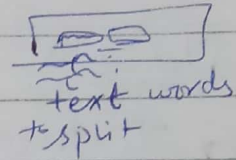 text words
to split